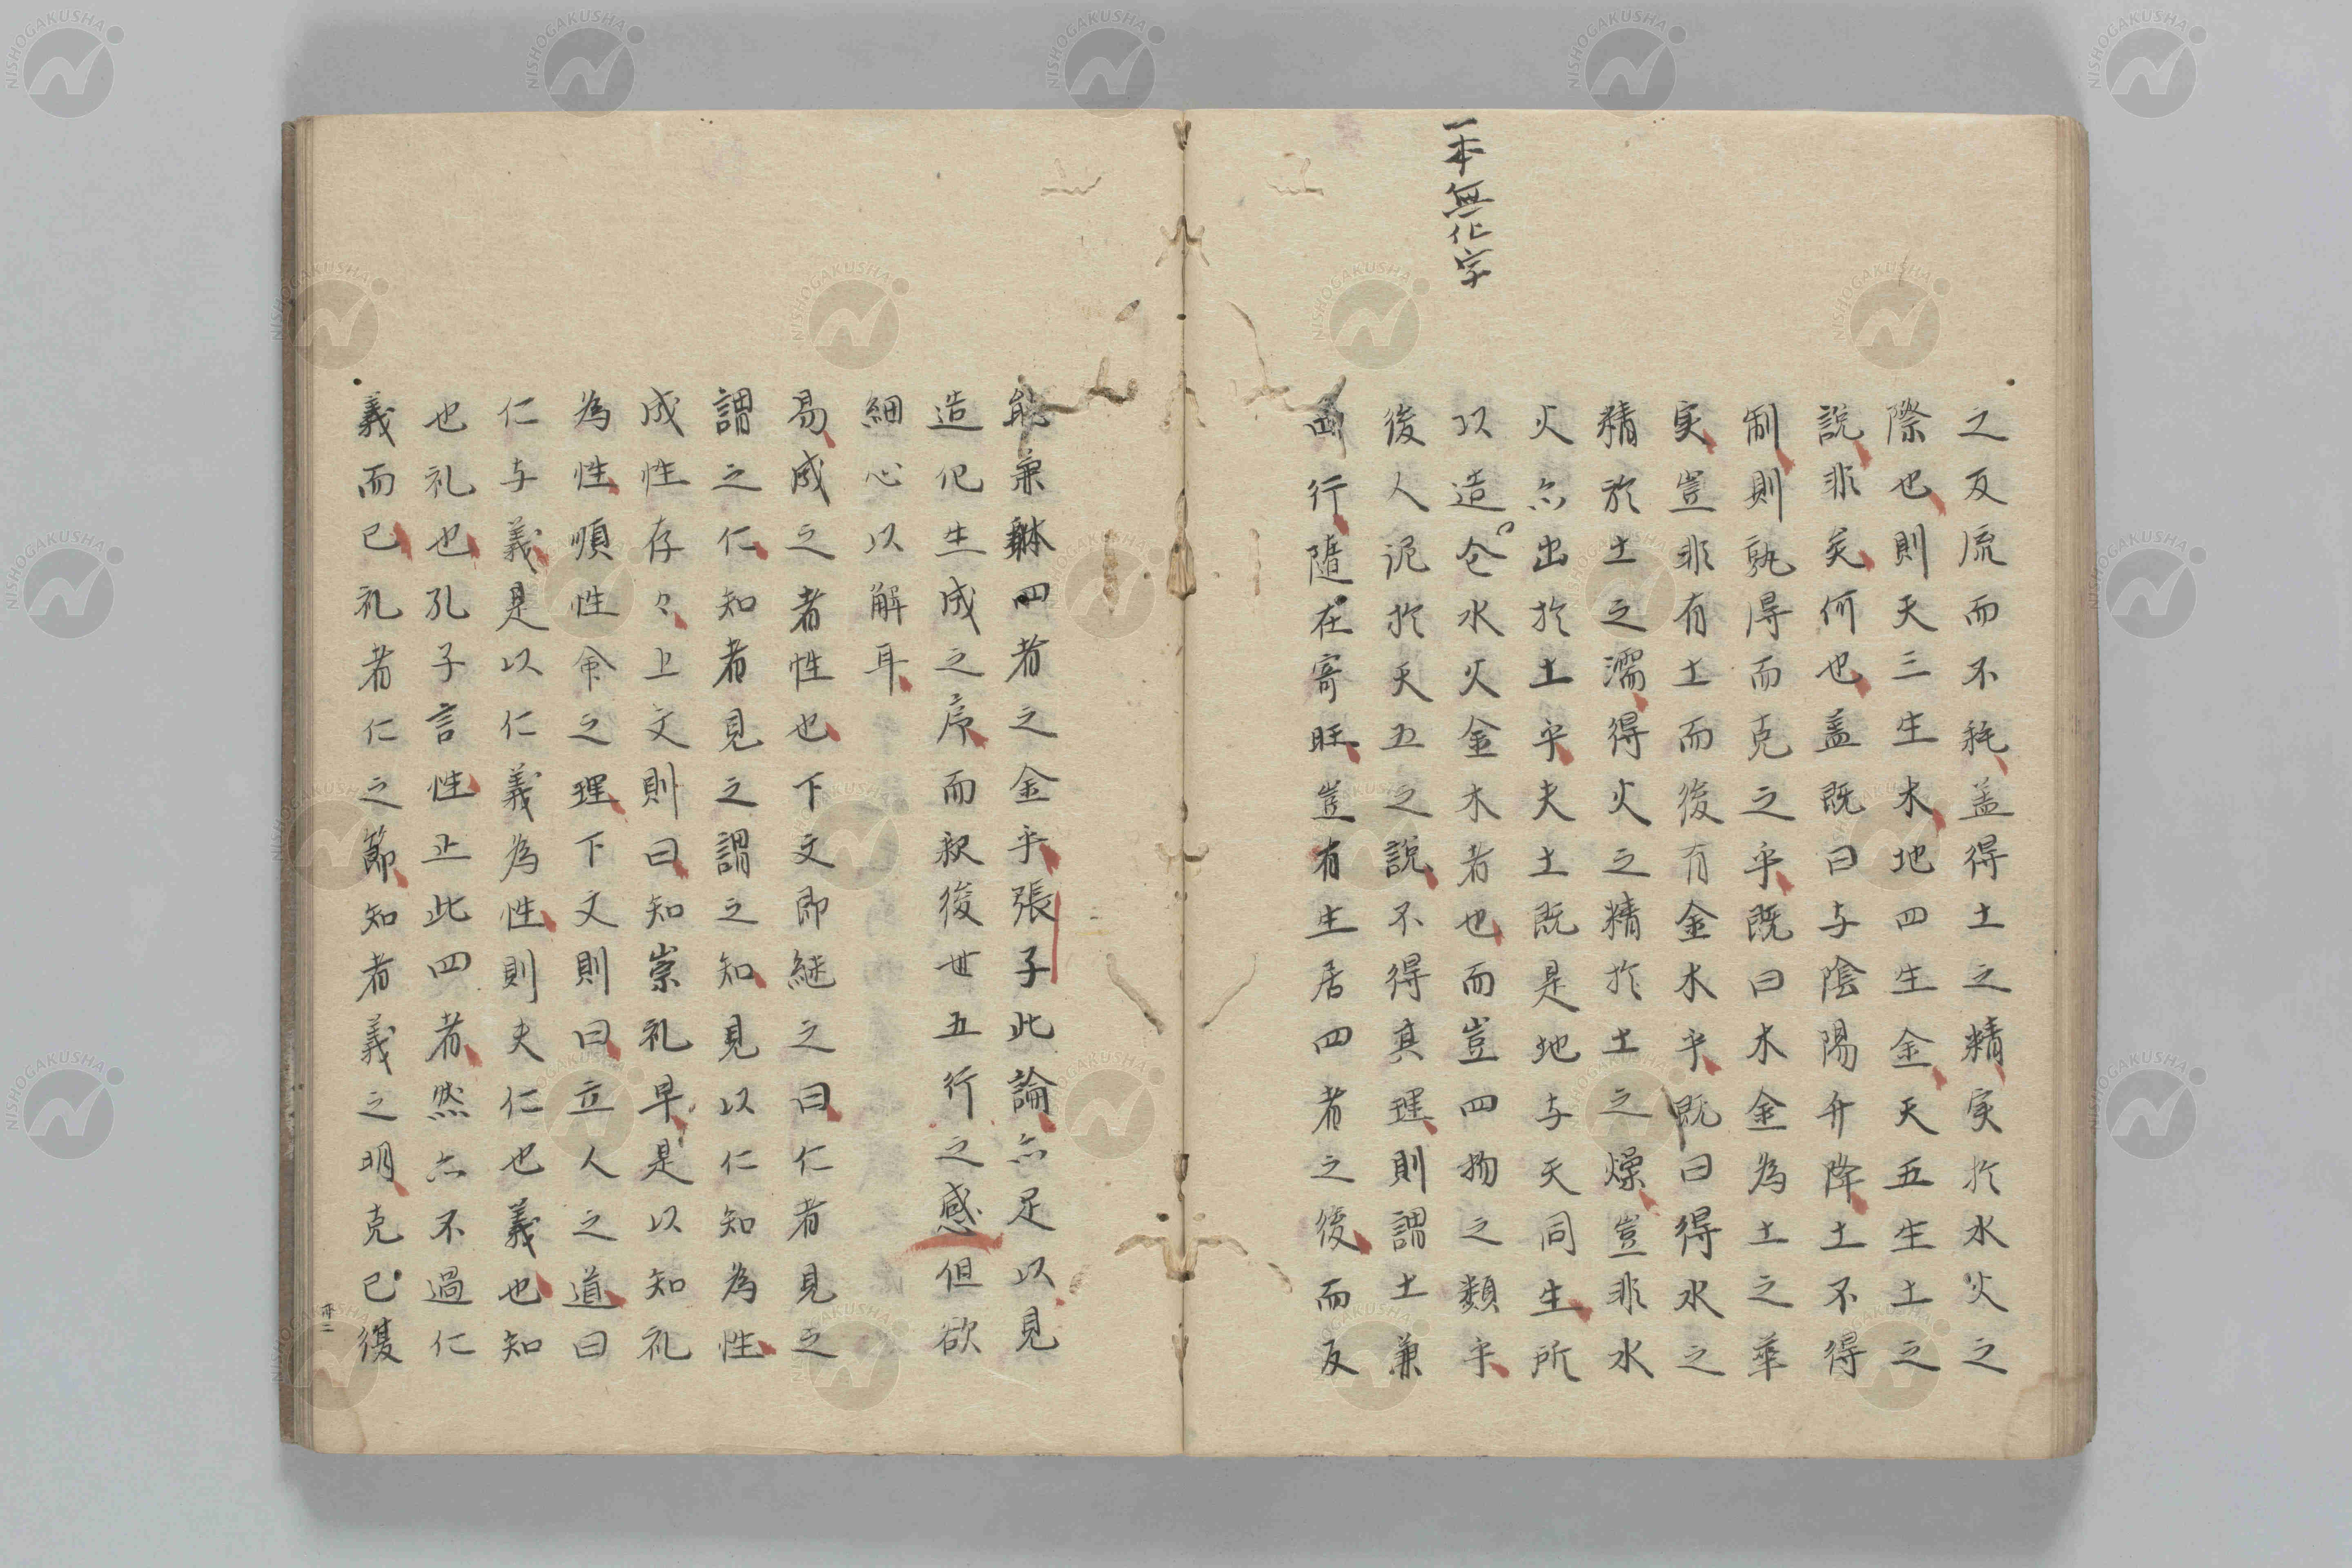 一本無化字
之反流而不耗盖得土之精実於水火之
際也則天三生木地四生金天五生土之
説非矣何也盖既曰与陰陽升降土不得
制則孰得而克之乎既曰木金為土之華
実豈非有土而後有金木乎既曰得水之
精於土之濡得火之精於土之燥豈非水
火亦出於土乎夫土既是地与天同生所
以造化水火金木者也而豈四物之類乎
後人泥於天五之説不得其理則謂土兼
四行隨在寄旺豈有生居四者之後而反
能兼躰四者之金乎張子此論亦足以見
造化生成之序而釈後世五行之惑但欲
細心以解耳
易成之者性也下文即継之曰仁者見之
謂之仁知者見之謂之知見以仁知為性
成性存々上文則曰知崇礼卑是以知礼
為性順性命之理下文則曰立人之道曰
仁与義是以仁義為性則夫仁也義也知
也礼也孔子言性止此四者然亦不過仁
義而已礼者仁之節知者義之明克己復
NISHOGAKUSHA